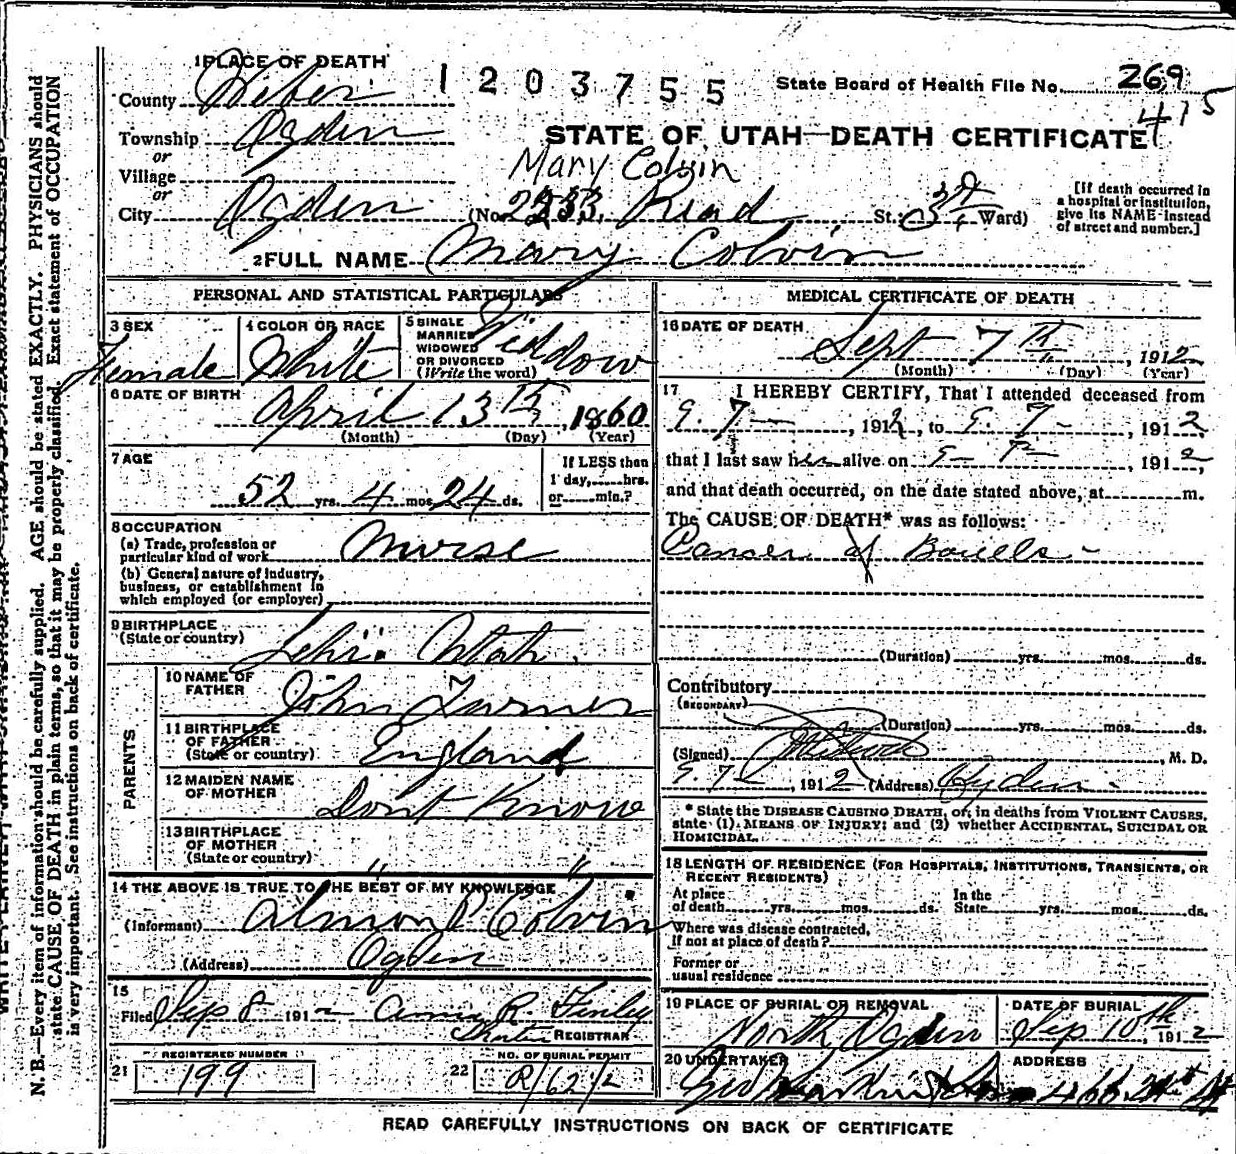 1 PLACE OF DEATH
1203755
State Board of Health File No. 269
415
County Weber
Township Ogden
or
Village
or
City Ogden
STATE OF UTAH—DEATH CERTIFICATE
Mary Colvin
(No. 2233 Read St.; 3rd Ward)
[If death occurred in
a hospital or institution,
give its NAME instead
of street and number.]
2 FULL NAME Mary Colvin
PERSONAL AND STATISTICAL PARTICULARS
3 SEX
Female
4 COLOR OR RACE
White
5 SINGLE
MARRIED
WIDOWED
OR DIVORCED
(Write the word)
Widdow
6 DATE OF BIRTH
April 13th, 1860
(Month) (Day) (Year)
7 AGE
52 yrs. 4 mos. 24 ds.
If LESS than
1 day, hrs.
or min.?
8 OCCUPATION
(a) Trade, profession or
particular kind of work Nurse
(b) General nature of industry,
business, or establishment in
which employed (or employer)
9 BIRTHPLACE
(State or country) Lehi Utah
PARENTS
10 NAME OF
FATHER John Turner
11 BIRTHPLACE
OF FATHER
(State or country) England
12 MAIDEN NAME
OF MOTHER Dont Know
13 BIRTHPLACE
OF MOTHER
(State or country) " "
14 THE ABOVE IS TRUE TO THE BEST OF MY KNOWLEDGE
(Informant) Almon P Colvin
(Address) Ogden
15
Filed Sep 8 1912 R. Finley
REGISTRAR
REGISTERED NUMBER
21 199
NO. OF BURIAL PERMIT
22 R/6212
MEDICAL CERTIFICATE OF DEATH
16 DATE OF DEATH
Sept 7th, 1912
(Month) (Day) (Year)
17 I HEREBY CERTIFY, That I attended deceased from
9 7, 1912, to 9. 7, 1912,
that I last saw her alive on 9 7, 1912,
and that death occurred, on the date stated above, at m.
The CAUSE OF DEATH* was as follows:
Canser of Bowells
(Duration) yrs. mos. ds.
Contributory
(SECONDARY)
(Duration) yrs. mos. ds.
(Signed) , M. D.
9 7, 1912 (Address) Ogden
* State the DISEASE CAUSING DEATH, or, in deaths from VIOLENT CAUSES,
state (1) MEANS OF INJURY; and (2) whether ACCIDENTAL, SUICIDAL OR
HOMICIDAL.
18 LENGTH OF RESIDENCE (FOR HOSPITALS, INSTITUTIONS, TRANSIENTS, OR
RECENT RESIDENTS)
At place In the
of death yrs. mos. ds. State yrs. mos. ds.
Where was disease contracted,
if not at place of death?
Former or
usual residence
19 PLACE OF BURIAL OR REMOVAL
North Ogden
DATE OF BURIAL
Sep 10th, 1912
20 UNDERTAKER
ADDRESS
466 24th St
READ CAREFULLY INSTRUCTIONS ON BACK OF CERTIFICATE
N. B.—Every item of information should be carefully supplied. AGE should be stated EXACTLY. PHYSICIANS should
state CAUSE OF DEATH in plain terms, so that it may be properly classified. Exact statement of OCCUPATION
is very important. See instructions on back of certificate.